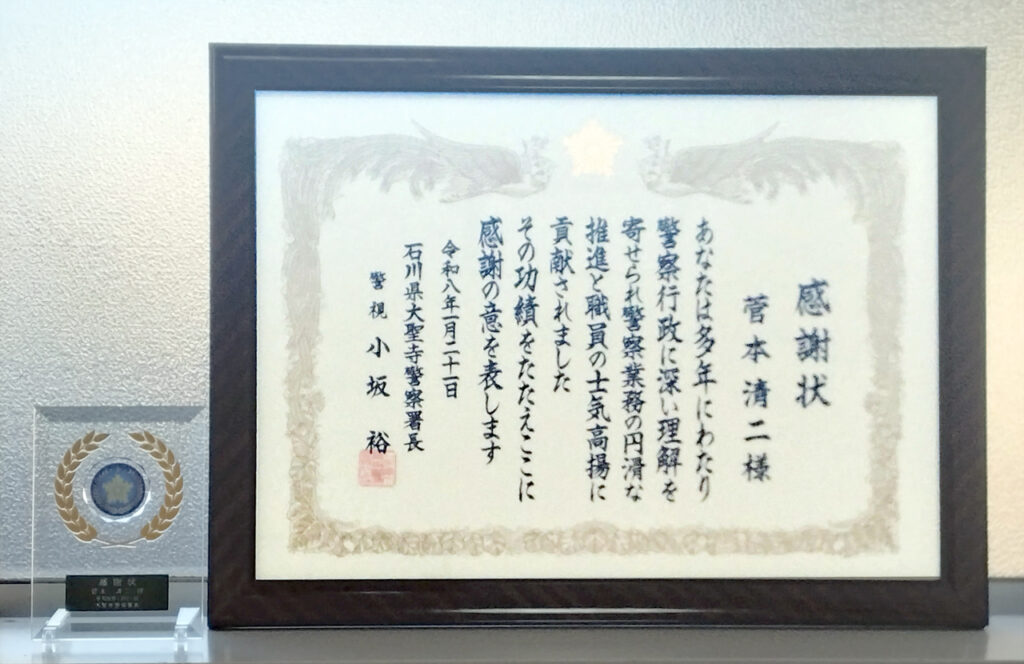 感謝状
菅本清二様
あなたは多年にわたり
警察行政に深い理解を
寄せられ警察業務の円滑な
推進と職員の士気高揚に
貢献されました
その功績をたたえここに
感謝の意を表します
令和八年一月二十一日
石川県大聖寺警察署長
警視 小坂 裕
感謝状